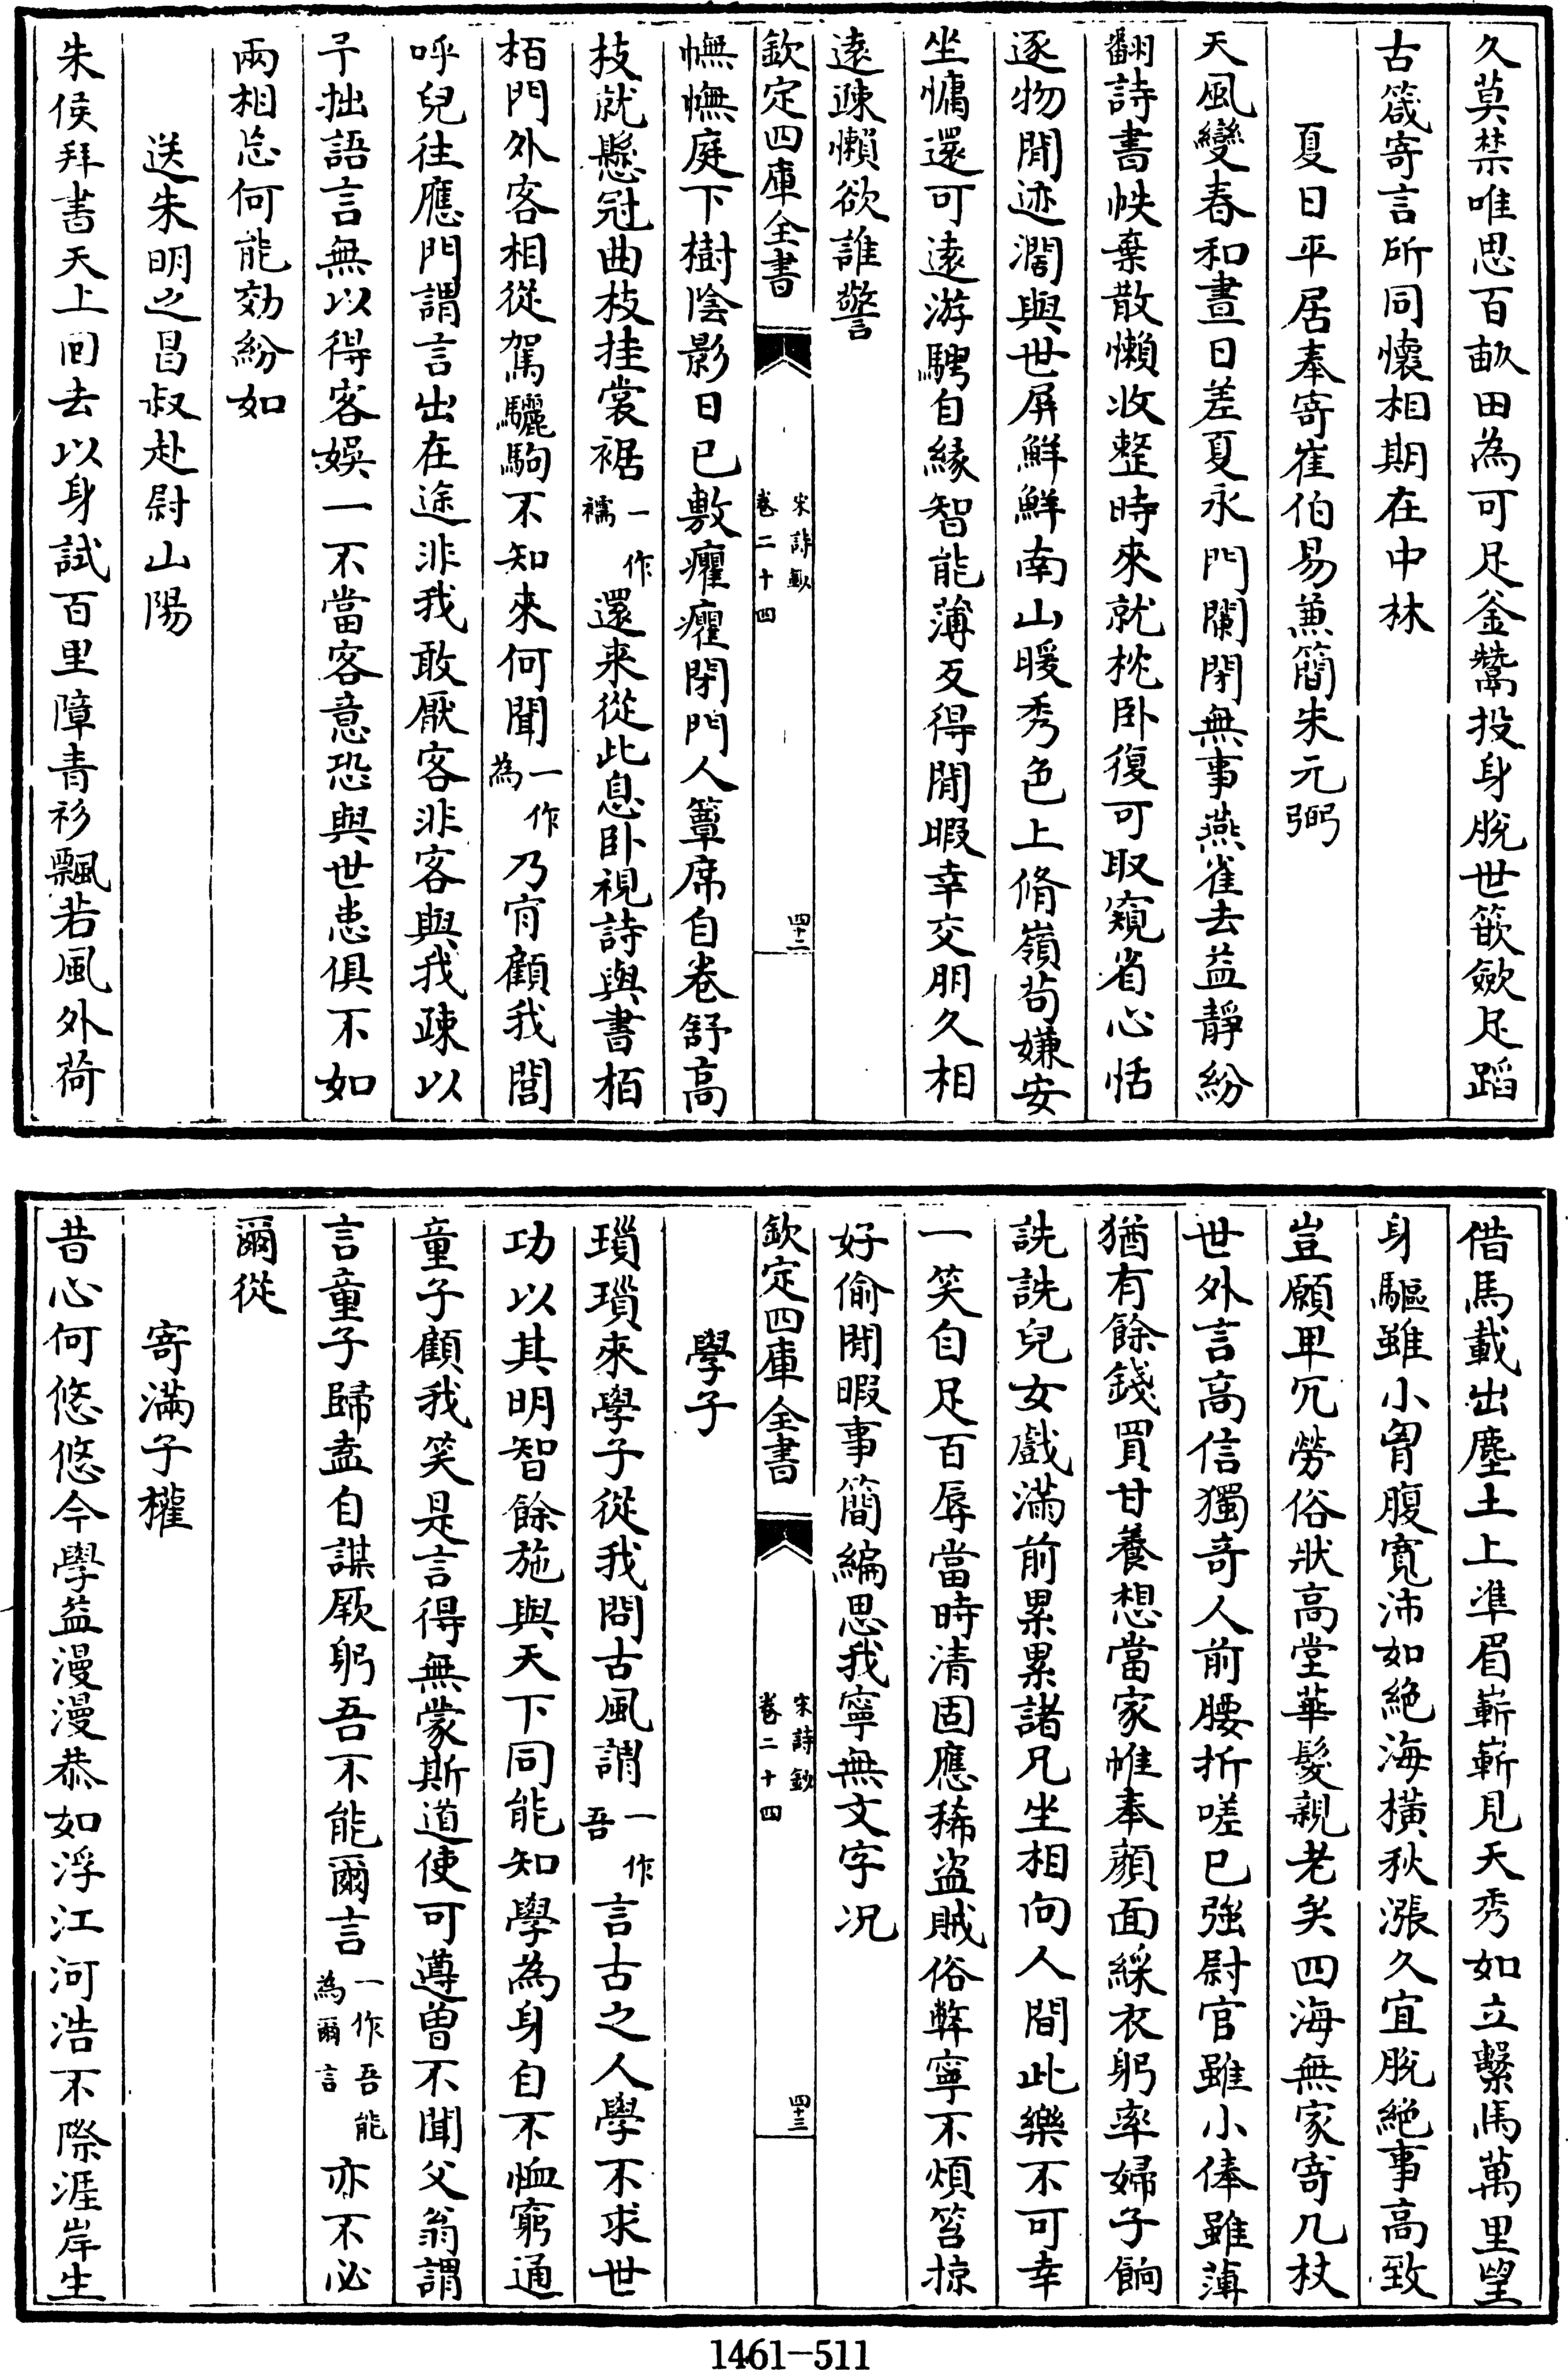 久莫禁唯思百畝田為可足釜鬵投身脫世篏斂足蹈
古箴寄言所同懷相期在中林
夏日平居奉寄崔伯易兼簡朱元弼
天風變春和晝日差夏永門闌閉無事燕雀去益靜紛
翻詩書帙棄散懶收整時來就枕卧復可取窺省心恬
逐物閒迹濶與世屏鮮鮮南山暖秀色上脩嶺苟嫌安
坐慵還可遠游騁自緣智能薄反得閒暇幸交朋久相
遠疎懶欲誰警
欽定四庫全書
宋詩鈔
卷二十四
四十二
幠幠庭下樹陰影日已敷癯癯閉門人簟席自卷舒高
枝就懸冠曲枝挂裳裾一作襦還来從此息卧視詩與書栢
栢門外客相從駕驪駒不知來何聞一作為乃肎顧我閭
呼兒往應門謂言出在途非我敢厭客非客與我疎以
予拙語言無以得客娛一不當客意恐與世患俱不如
兩相忘何能効紛如
送朱明之昌叔赴尉山陽
朱侯拜書天上回去以身試百里障青衫飄若風外荷
借馬載出塵土上凖眉嶄嶄見天秀如立繫馬萬里望
身驅雖小胷腹寬沛如絶海橫秋漲久宜脫絶事高致
豈願卑冗勞俗狀高堂華髮親老矣四海無家寄几杖
世外言高信獨奇人前腰折嗟已強尉官雖小俸雖薄
猶有餘錢買甘養想當家帷奉顏面綵衣躬率婦子餉
詵詵兒女戲滿前累累諸兄坐相向人間此樂不可幸
一笑自足百辱當時清固應稀盜賊俗弊寧不煩笞掠
好偷閒暇事簡編思我寧無文字況
欽定四庫全書
宋詩鈔
卷二十四
四十三
學子
瑣瑣來學子從我問古風謂一作吾言古之人學不求世
功以其明智餘施與天下同能知學為身自不恤窮通
童子顧我笑是言得無蒙斯道使可遵曽不聞父翁謂
言童子歸盍自謀厥躬吾不能爾言一作吾能為爾言亦不必
爾從
寄滿子權
昔心何悠悠今學益漫漫恭如浮江河浩不際涯岸生
1461-511